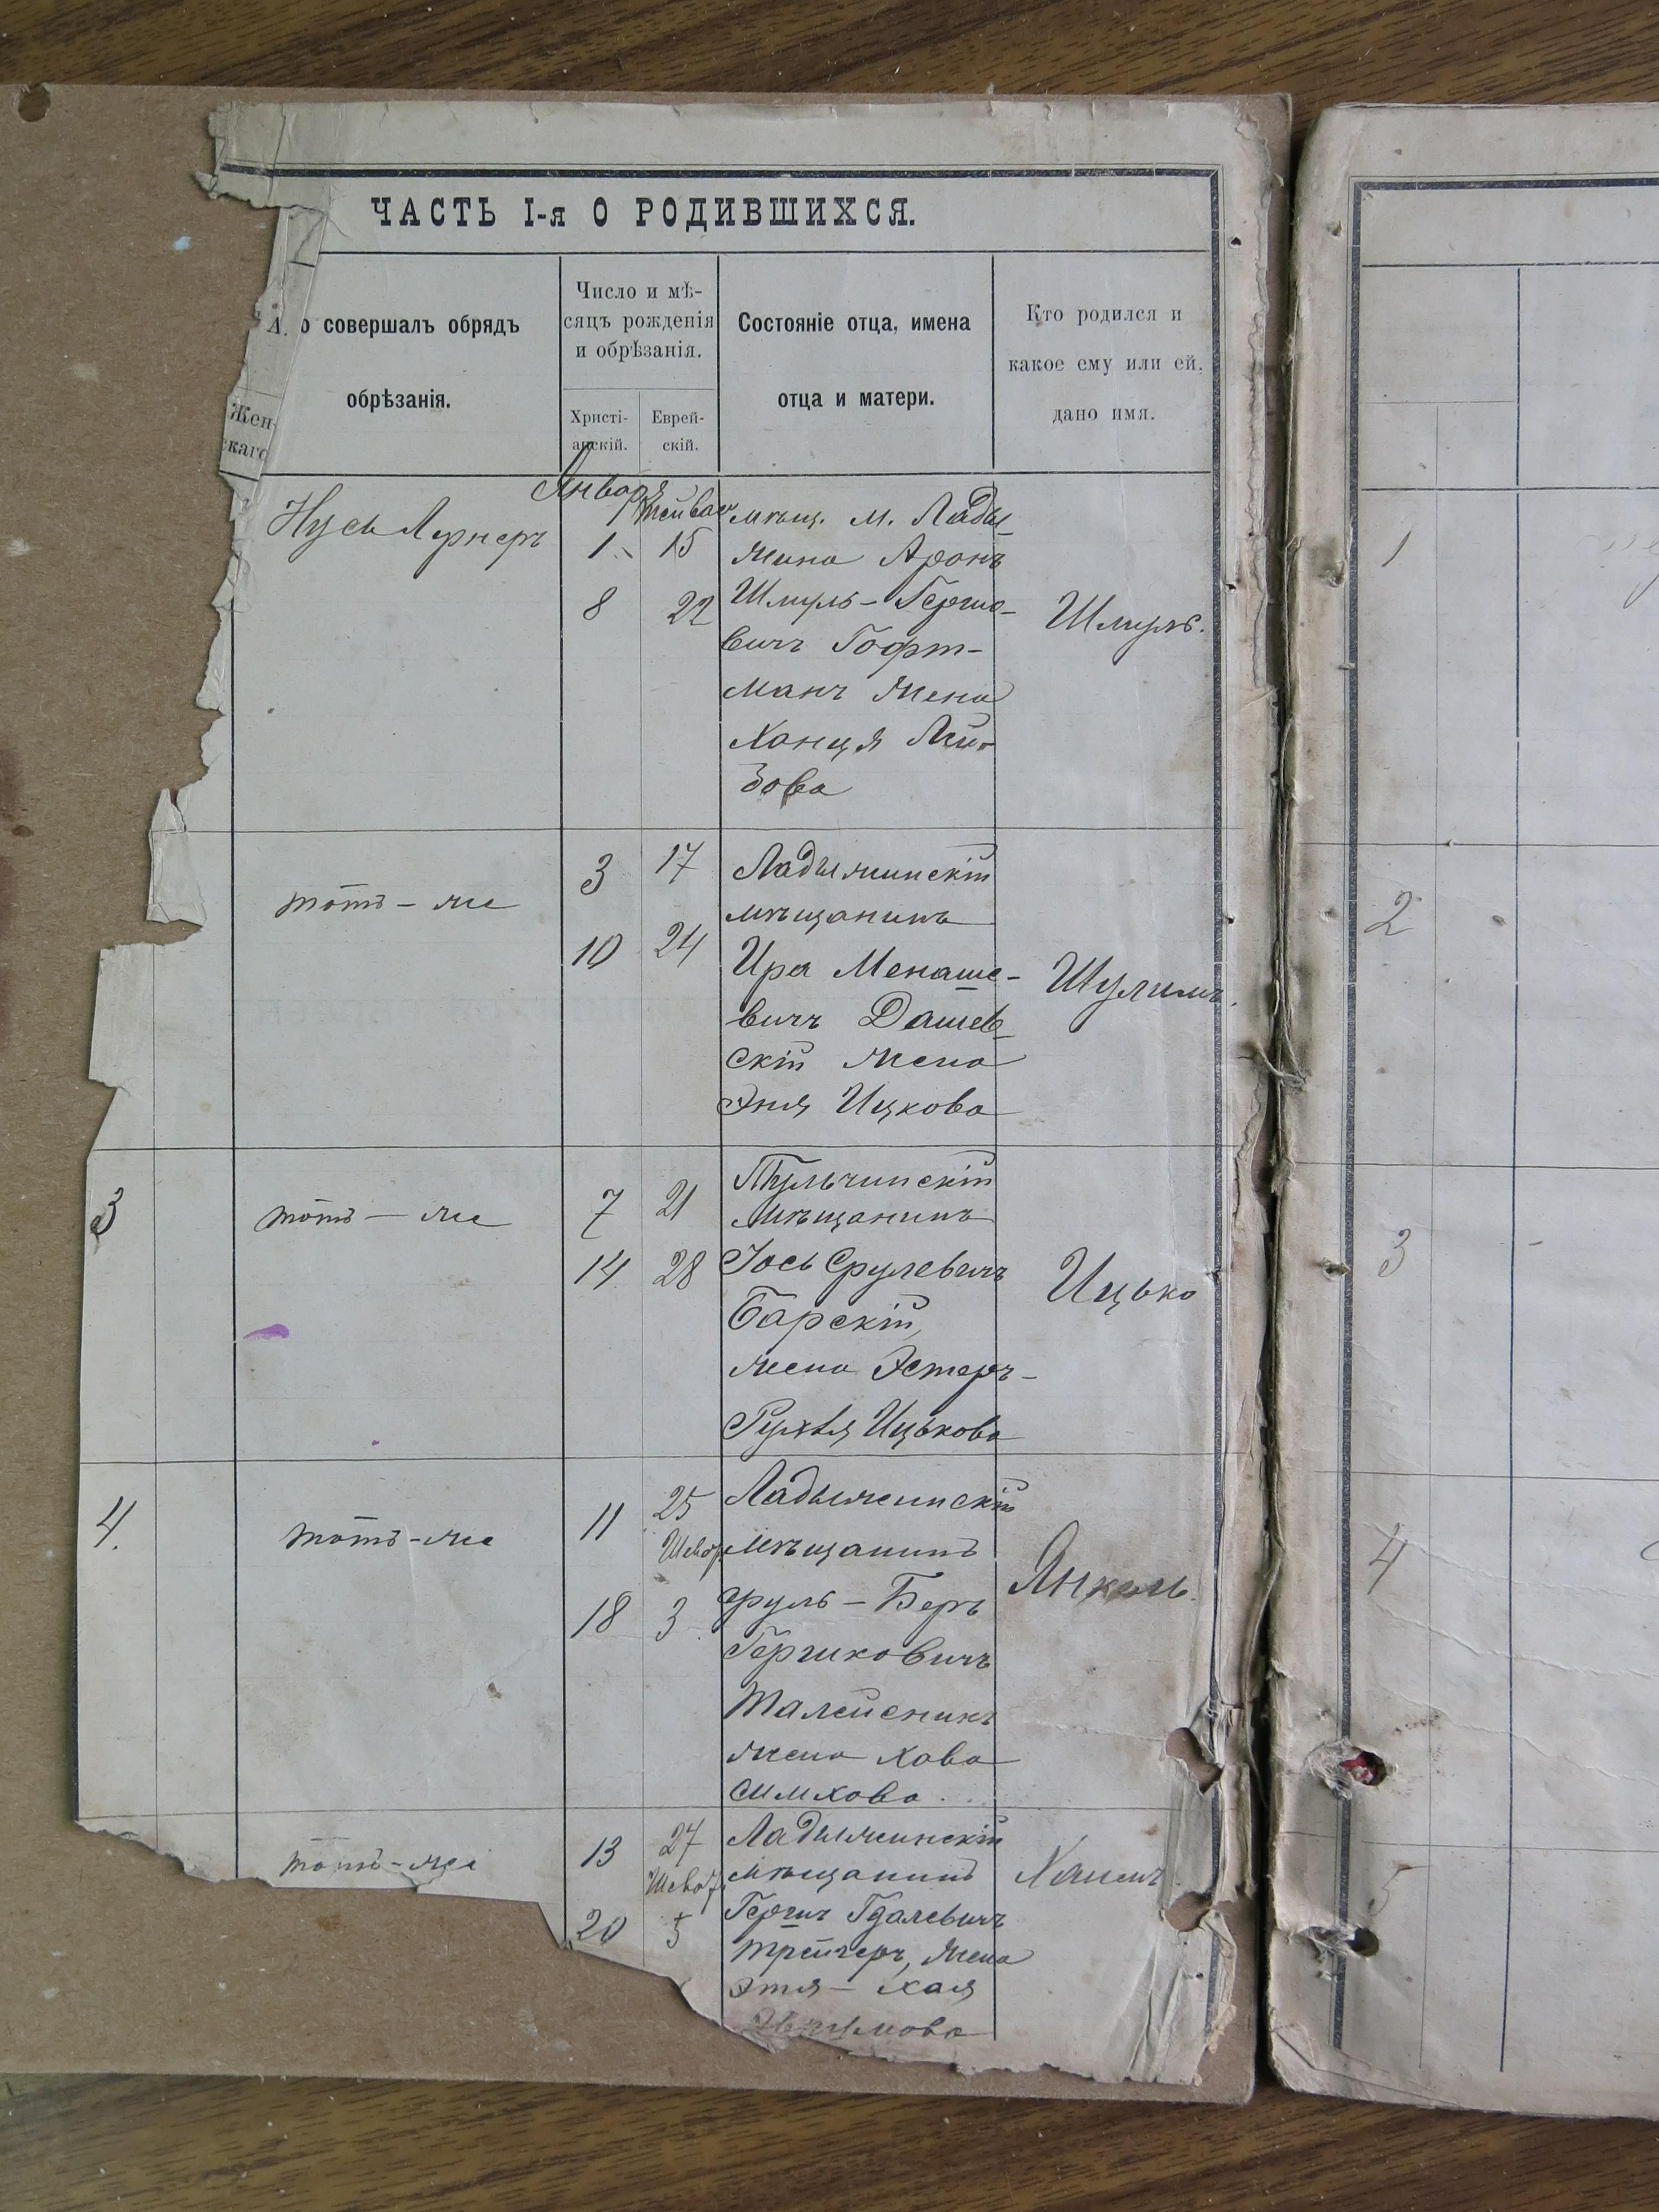 ЧАСТЬ I-я О РОДИВШИХСЯ.
Жен-
скаго
о совершалъ обрядъ
обрѣзанія.
Число и мѣ-
сяцъ рожденія
и обрѣзанія.
Христі-
анскій.
Еврей-
скій.
Состояніе отца, имена
отца и матери.
Кто родился и
какое ему или ей,
дано имя.
Нусь Лернеръ
Января
Тейвас
1 15
8 22
мѣщ. м. Лады
жина Аронъ
Шмуль-Гершо-
вичъ Гофт-
манъ жена
Ханця Лей-
зова
Шмуль.
тотъ-же
3 17
10 24
Ладыжинскій
мѣщанинъ
Ира Менаше-
вичъ Дашев-
скій жена
Эня Ицкова
Шулимъ.
3
тотъ-же
7 21
14 28
Тульчинскій
мѣщанинъ
Іось Срулевичъ
Барскій,
жена Эстеръ-
Рухля Ицькова
Ицько
4.
тотъ-же
11 25
Шевот
18 3
Ладыжинскій
мѣщанинъ
Сруль-Беръ
Гершковичъ
Талейсникъ
жена Хава
Симхова.
Янкель.
тотъ-же
13 27
Шевот
20 5
Ладыжинскій
мѣщанинъ
Гершъ Гдалевичъ
Трейгеръ, жена
Этя-Хая
Хаимъ.
1
2
3
4
5